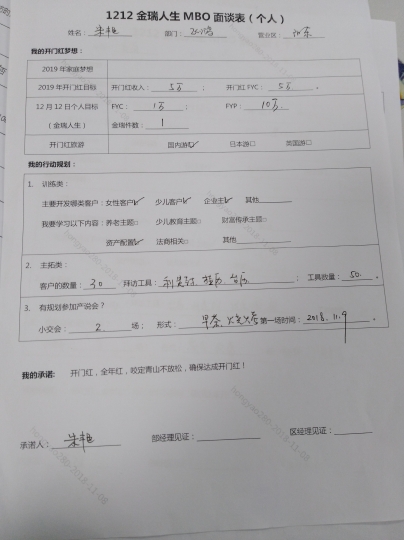 1212 金瑞人生 MBO 面谈表（个人）
姓名： 朱艳 部门： 营业区：
我的开门红梦想：
2019 年家庭梦想
2019 年开门红目标 开门红收入： 5万 ； 开门红 FYC： 5万 。
12 月 12 日个人目标 FYC： 1万 ； FYP： 10万 。
（金瑞人生） 金瑞件数： 1
开门红旅游 国内游☑ 日本游□ 英国游□
我的行动规划：
1. 训练类：
主要开发哪类客户：女性客户☑ 少儿客户☑ 企业主☑ 其他
我要学习以下内容：养老主题□ 少儿教育主题□ 财富传承主题□
资产配置☑ 法商相关□ 其他
2. 主拓类：
客户的数量： 30 拜访工具： 台历 ； 工具数量： 50 。
3. 有规划参加产说会？
小交会： 2 场； 形式： 早茶、 第一场时间： 2018.11.9 。
我的承诺： 开门红，全年红，咬定青山不放松，确保达成开门红！
承诺人： 朱艳 部经理见证： 区经理见证：